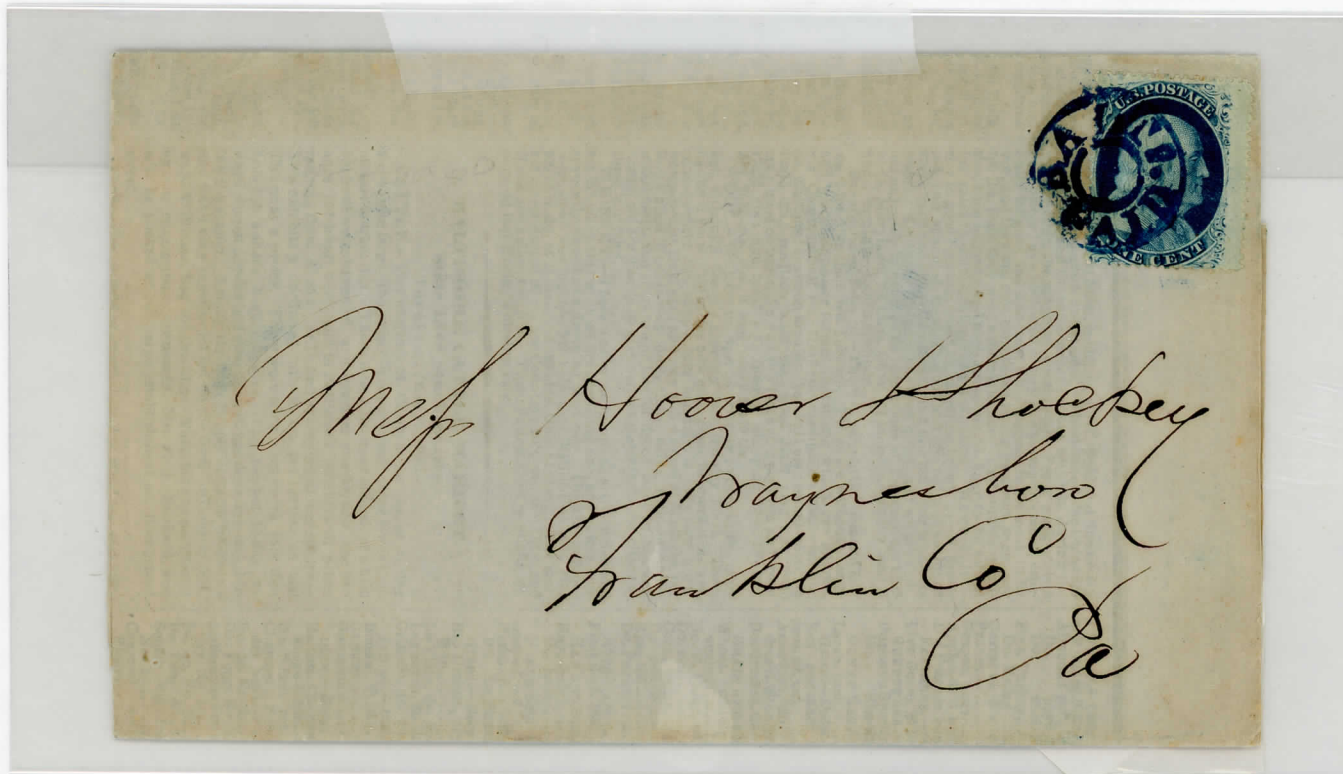 U.S. POSTAGE
ONE CENT
BAL
MD.
PAID
Mess Hoover & Shockey
Waynesboro
Franklin Co
Pa